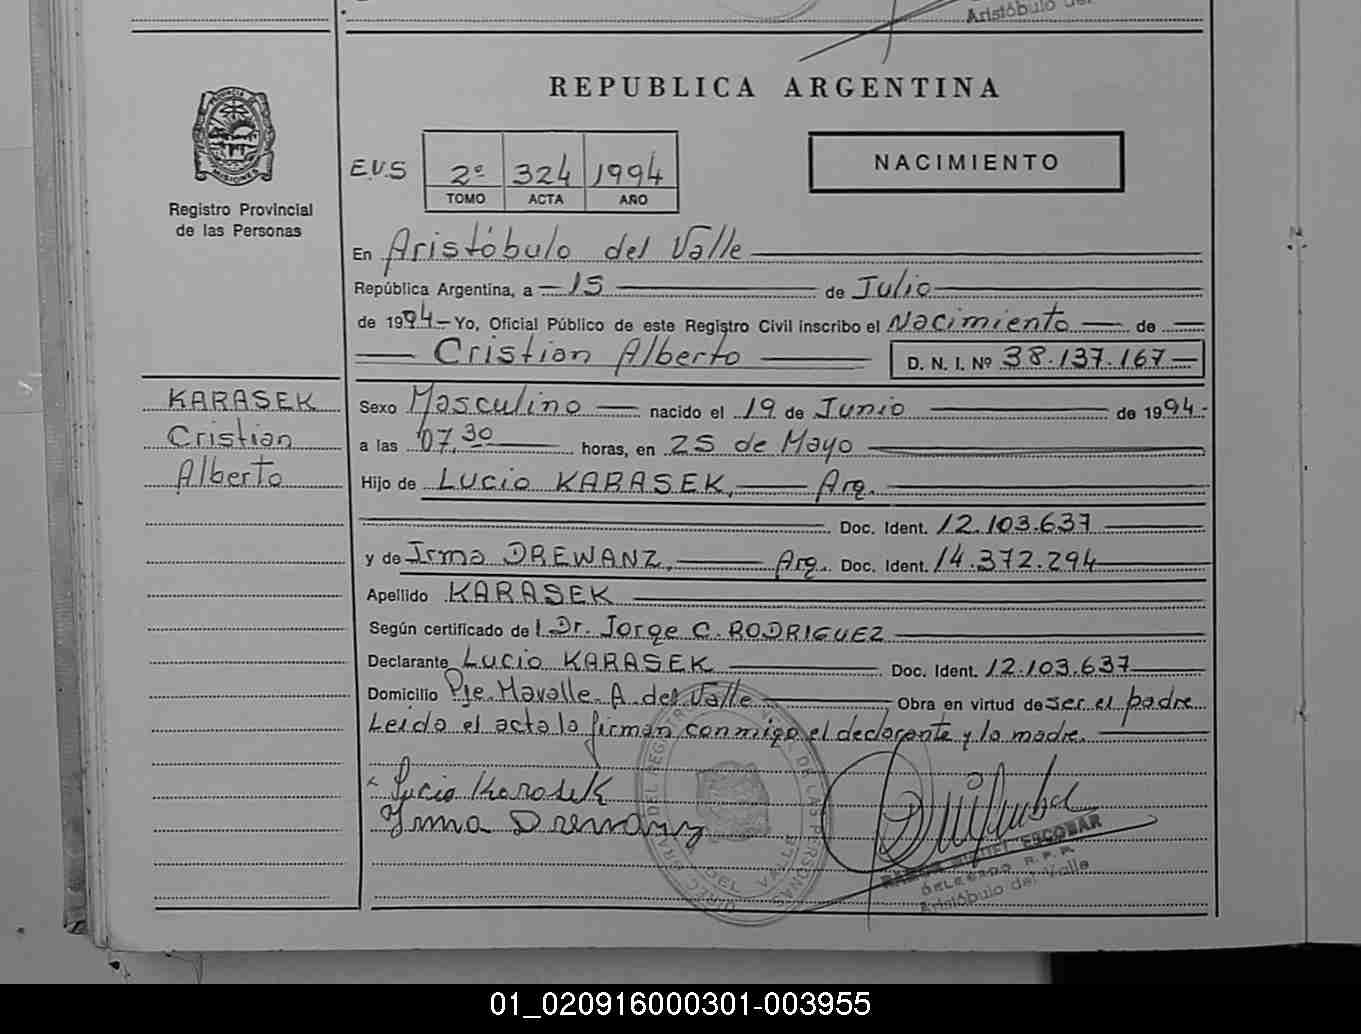 Aristóbulo del
PROVINCIA DE
MISIONES
Registro Provincial
de las Personas
REPUBLICA ARGENTINA
E.V.S
2º 324 1994
TOMO ACTA AÑO
NACIMIENTO
En Aristóbulo del Valle
República Argentina, a 15 de Julio
de 1994 Yo, Oficial Público de este Registro Civil inscribo el Nacimiento de
Cristian Alberto D. N. I. Nº 38.137.167
KARASEK
Cristian
Alberto
Sexo Masculino nacido el 19 de Junio de 1994.
a las 07,30 horas, en 25 de Mayo
Hijo de Lucio KARASEK, Arg.
Doc. Ident. 12.103.637
y de Irma DREWANZ, Arg. Doc. Ident. 14.372.294
Apellido KARASEK
Según certificado de l Dr. Jorge C. RODRIGUEZ
Declarante Lucio KARASEK Doc. Ident. 12.103.637
Domicilio Pje. Mavalle. A. del Valle Obra en virtud de ser el padre
Leida el acta la firman conmigo el declarante y la madre.
Lucio Karasek
Irma Drewanz
MIGUEL ESCOBAR
DELEGADO R.P.P.
Aristóbulo del Valle
01_020916000301-003955